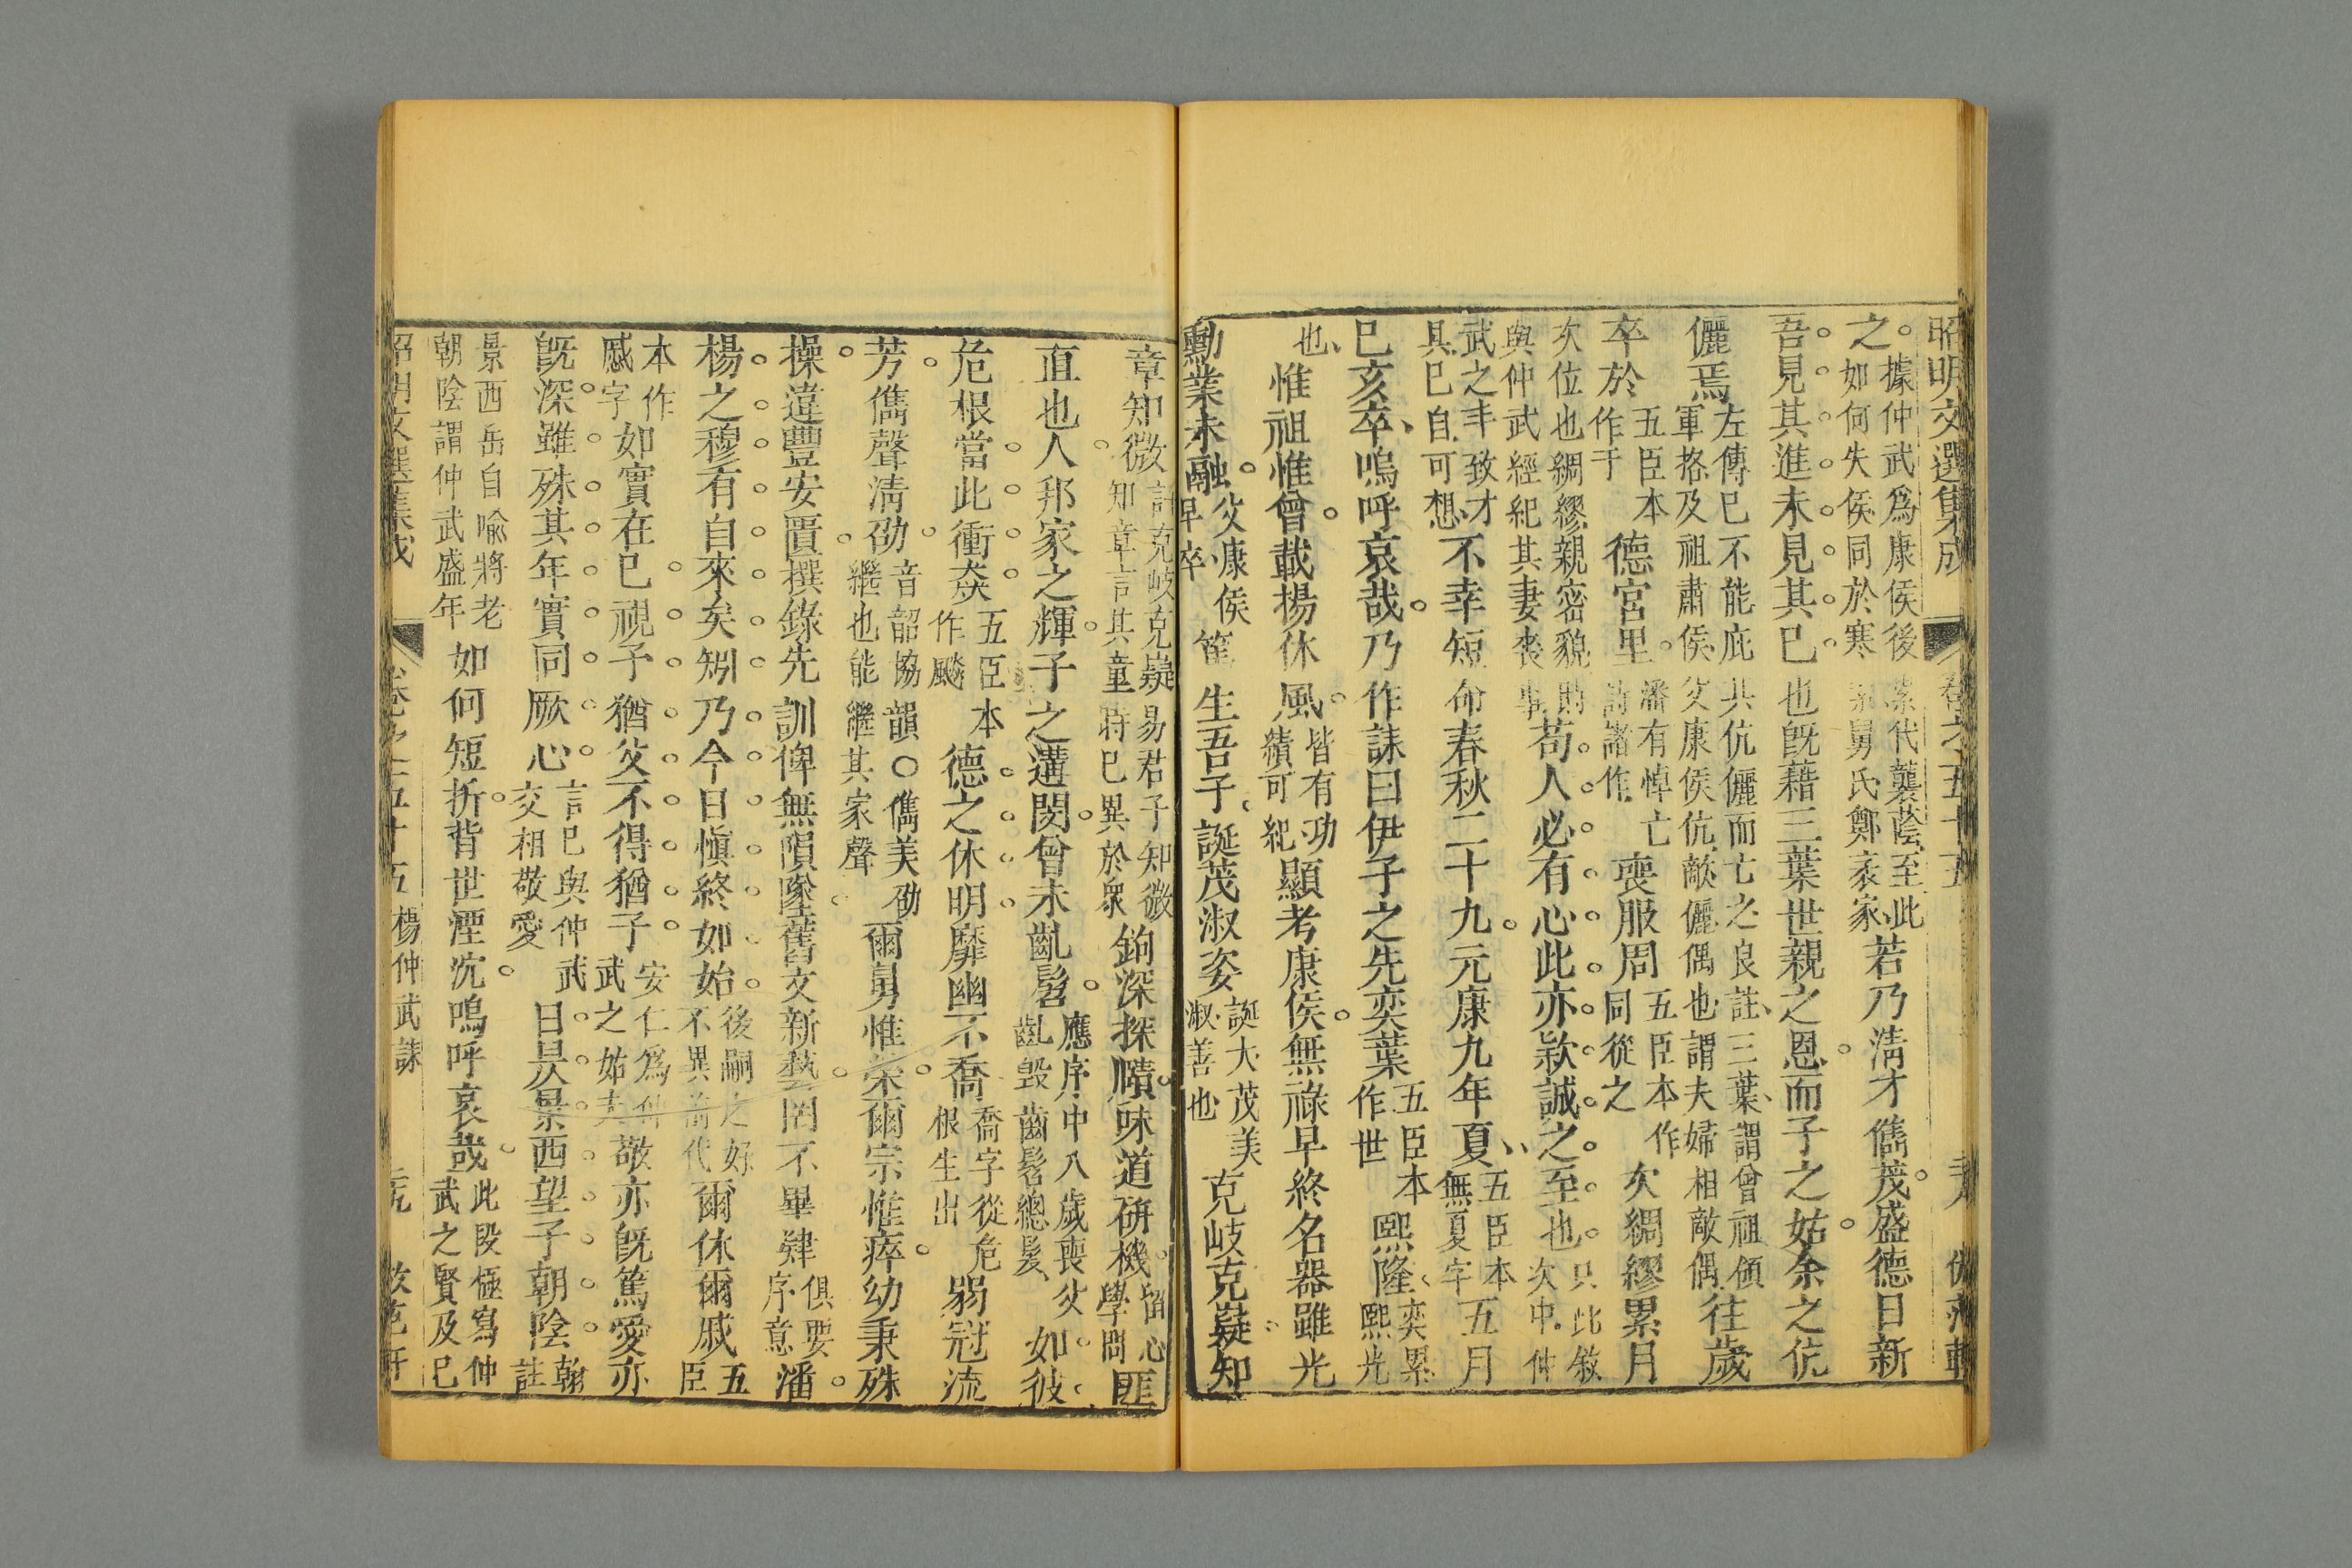 昭明文選集成 卷之五十五
之據仲武爲康侯後如何失侯同於寒素代襲蔭至此素舅氏鄭袤家若乃清才儁茂盛德日新
吾見其進未見其已也旣藉三葉世親之恩而子之姑余之伉
儷焉左傳已不能庇軍掿及祖肅侯其伉儷而亡之良註三葉謂曾祖領父康侯伉敵儷偶也謂夫婦相敵偶往歲
卒於五臣本作于德宮里潘有悼亡詩諸作喪服周五臣本作同從之次綢繆累月
次位也綢繆親密貌與仲武經紀其妻喪事時苟人必有心此亦款誠之至也只比敘次中仲
武之丰致才具已自可想不幸短命春秋二十九元康九年夏五臣本無夏字五月
已亥卒嗚呼哀哉乃作誄曰伊子之先奕葉五臣本作世熙隆奕累熙光
也惟祖惟曾載揚休風皆有功績可紀顯考康侯無祿早終名器雖光
勳業未融父康侯早卒篤生吾子誕茂淑姿誕大茂美淑善也克岐克嶷知
章知微詩克岐克嶷易君子知微知章言其童時已異於衆鉤深探賾味道研機留心學問匪
直也人邦家之輝子之遘閔曾未齓髫應序中八歲喪父齓毀齒髫總髮如彼
危根當此衝猋五臣本作飈德之休明靡幽不喬喬字從危根生出弱冠流
芳儁聲清劭音韶協韻〇儁美劭繼也能繼其家聲爾舅惟榮爾宗惟瘁幼秉殊
操違豐安匱撰錄先訓俾無隕墜舊文新藝罔不畢肄俱要序意潘
楊之穆有自來矣矧乃今日愼終如始後嗣之好不異前代爾休爾戚五臣
本作慼字如實在己視子猶父不得猶子安仁爲仲武之姑夫敬亦旣篤愛亦
旣深雖殊其年實同厥心言己與仲武交相敬愛日昃景西望子朝陰翰註
景西岳自喻將老朝陰謂仲武盛年如何短折背世湮沉嗚呼哀哉此段極寫仲武之賢及已
昭明文選集成 卷之五十五 楊仲武誄